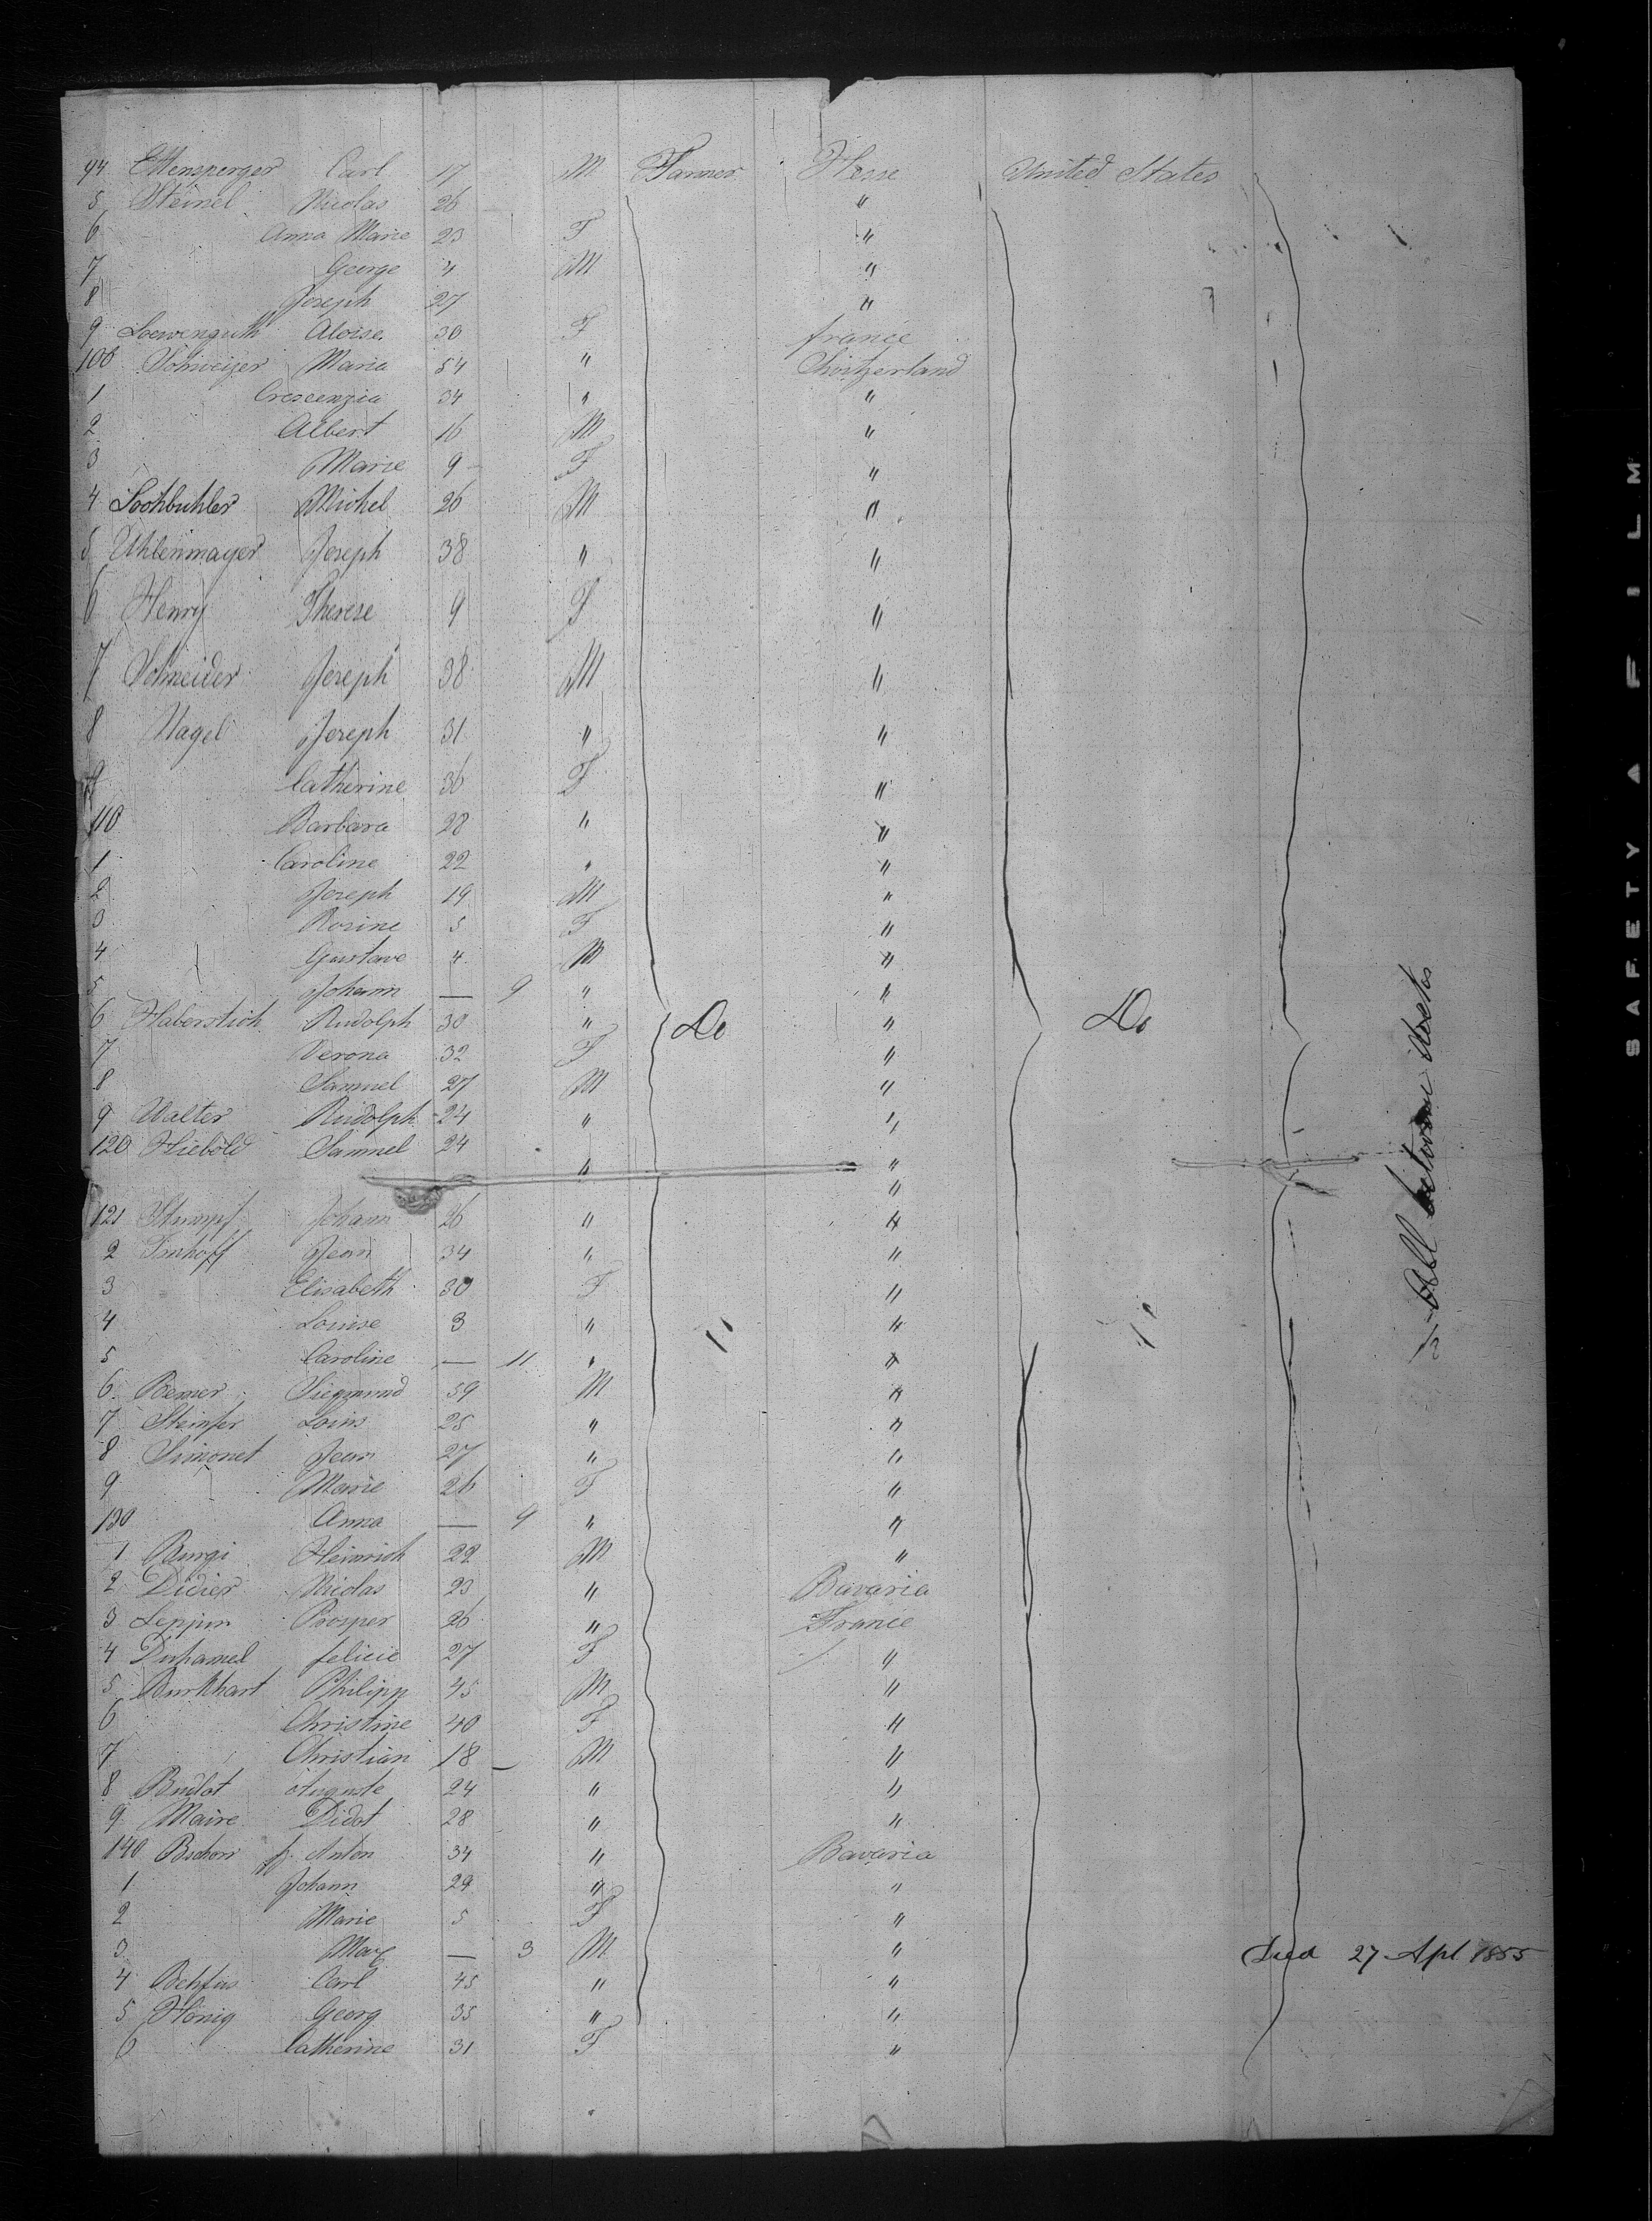 94 Ettensperger Carl 17 M Farmer Hesse United States
5 Steinel Nicolas 26 "
6 Anna Marie 23 F "
7 George 4 M "
8 Joseph 27 "
9 Loewenguth Aloise 30 F france
100 Schweizer Maria 54 " Switzerland
1 Crescenzia 34 " "
2 Albert 16 M "
3 Marie 9 F "
4 Sochbuhler Michel 26 M "
5 Uhlenmayer Joseph 38 " "
6 Henry Therese 9 F "
7 Schneider Joseph 38 M "
8 Nagel Joseph 31 " "
9 Catherine 36 F "
110 Barbara 28 " "
1 Caroline 22 " "
2 Joseph 19 M "
3 Rosine 5 F "
4 Gustave 4 M "
5 Johann — 9 " "
6 Haberstich Rudolph 30 " Do " Do
7 Verona 32 F "
8 Samuel 27 M "
9 Walter Rudolph 24 " "
120 Hiebold Samuel 24 " "
"
121 Stumpf Johann 26 " "
2 Imhoff Jean 34 " "
3 Elisabeth 30 F "
4 Louise 3 " " " "
5 Caroline — 11 " "
6 Siegmund 59 M "
7 Louis 25 " "
8 Simonet Jean 27 " "
9 Marie 26 F "
130 Anna — 9 " "
1 Burgi Heinrich 22 M "
2 Didier Nicolas 23 " Bavaria
3 Prosper 26 " France
4 Duhamel felicie 27 F "
5 Burkhart Philipp 45 M "
6 Christine 40 F "
7 Christian 18 — M "
8 Budlot Auguste 24 " "
9 Maire Didot 28 " "
140 Bschorr Anton 34 " Bavaria
1 Johann 29 " "
2 Marie 5 F "
3 Max — 3 M " Died 27 Apl 1855
4 Rehfus Carl 45 " "
5 Hönig Georg 35 " "
6 Catherine 31 F "
All between Decks
SAFETY A FILM